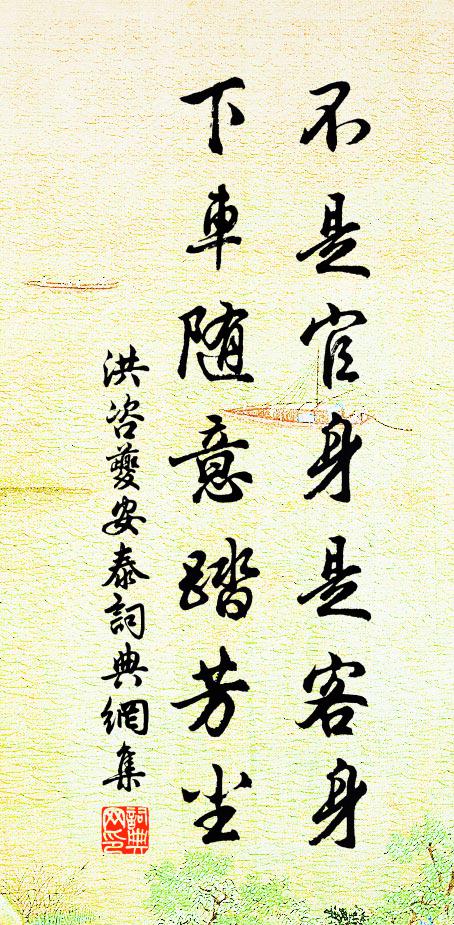 不是官身是客身
下車随意踏芳尘
洪咨夔安泰詞典網集
詞典
网印